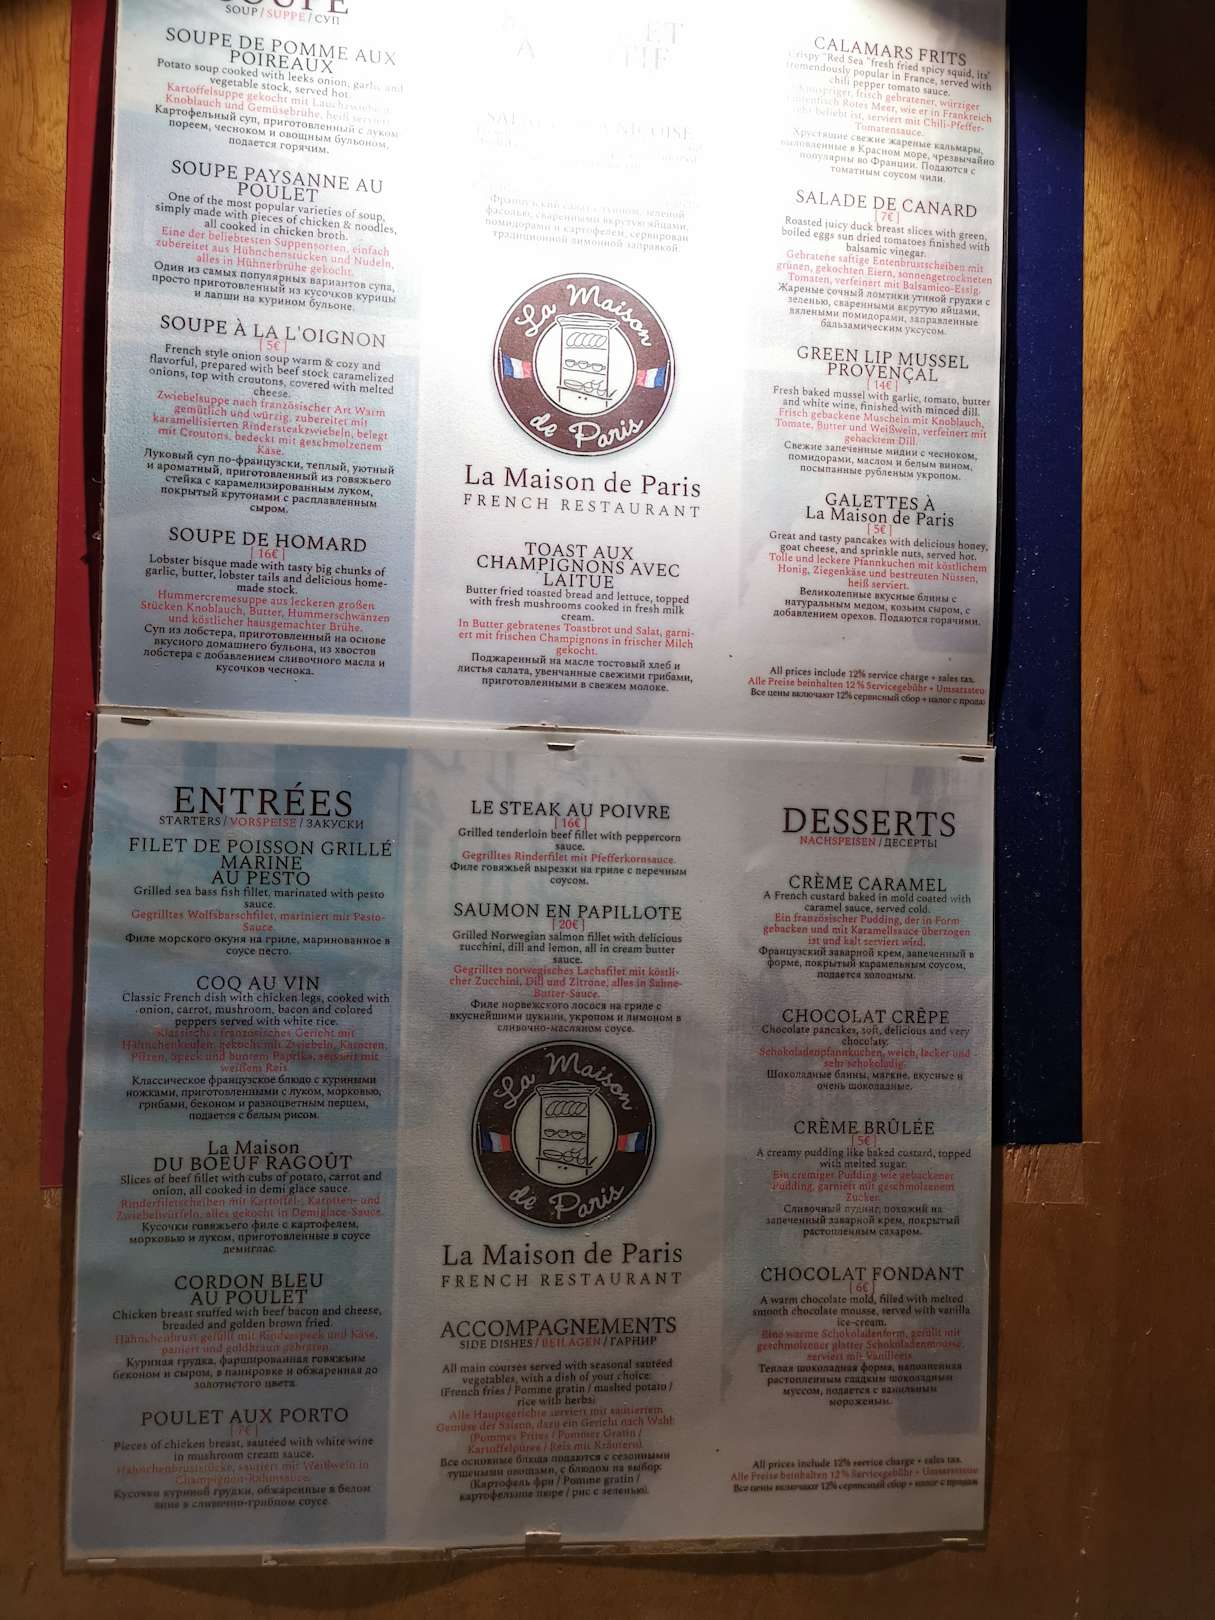 SOUP / SUPPE / СУП
SOUPE DE POMME AUX
POIREAUX
Potato soup cooked with leeks onion, garlic and
vegetable stock, served hot.
Kartoffelsuppe gekocht mit Lauchzwiebeln,
Knoblauch und Gemüsebrühe, heiß serviert.
Картофельный суп, приготовленный с луком
пореем, чесноком и овощным бульоном,
подается горячим.
SOUPE PAYSANNE AU
POULET
One of the most popular varieties of soup,
simply made with pieces of chicken & noodles,
all cooked in chicken broth.
Eine der beliebtesten Suppensorten, einfach
zubereitet aus Hühnchenstücken und Nudeln,
alles in Hühnerbrühe gekocht.
Один из самых популярных вариантов супа,
просто приготовленный из кусочков курицы
и лапши на курином бульоне.
SOUPE À LA L'OIGNON
[ 5€ ]
French style onion soup warm & cozy and
flavorful, prepared with beef stock caramelized
onions, top with croutons, covered with melted
cheese.
Zwiebelsuppe nach französischer Art Warm
gemütlich und würzig, zubereitet mit
karamellisierten Rindersteakzwiebeln, belegt
mit Croutons, bedeckt mit geschmolzenem
Käse.
Луковый суп по-французски, теплый, уютный
и ароматный, приготовленный из говяжьего
стейка с карамелизированным луком,
покрытый крутонами с расплавленным
сыром.
SOUPE DE HOMARD
[ 16€ ]
Lobster bisque made with tasty big chunks of
garlic, butter, lobster tails and delicious home-
made stock.
Hummercremesuppe aus leckeren großen
Stücken Knoblauch, Butter, Hummerschwänzen
und köstlicher hausgemachter Brühe.
Суп из лобстера, приготовленный на основе
вкусного домашнего бульона, из хвостов
лобстера с добавлением сливочного масла и
кусочков чеснока.
NICOISE
Французский салат с тунцом, зеленой
фасолью, сваренными вкрутую яйцами,
помидорами и картофелем, сервирован
традиционной лимонной заправкой.
La Maison
de Paris
La Maison de Paris
FRENCH RESTAURANT
TOAST AUX
CHAMPIGNONS AVEC
LAITUE
Butter fried toasted bread and lettuce, topped
with fresh mushrooms cooked in fresh milk
cream.
In Butter gebratenes Toastbrot und Salat, garni-
ert mit frischen Champignons in frischer Milch
gekocht.
Поджаренный на масле тостовый хлеб и
листья салата, увенчанные свежими грибами,
приготовленными в свежем молоке.
CALAMARS FRITS
Crispy "Red Sea "fresh fried spicy squid, its'
tremendously popular in France, served with
chili pepper tomato sauce.
Knuspriger, frisch gebratener, würziger
Tintenfisch Rotes Meer, wie er in Frankreich
sehr beliebt ist, serviert mit Chili-Pfeffer-
Tomatensauce.
Хрустящие свежие жареные кальмары,
выловленные в Красном море, чрезвычайно
популярны во Франции. Подаются с
томатным соусом чили.
SALADE DE CANARD
[ 7€ ]
Roasted juicy duck breast slices with green,
boiled eggs sun dried tomatoes finished with
balsamic vinegar.
Gebratene saftige Entenbrustscheiben mit
grünen, gekochten Eiern, sonnengetrockneten
Tomaten, verfeinert mit Balsamico-Essig.
Жареные сочный ломтики утиной грудки с
зеленью, сваренными вкрутую яйцами,
вялеными помидорами, заправленные
бальзамическим уксусом.
GREEN LIP MUSSEL
PROVENÇAL
[ 14€ ]
Fresh baked mussel with garlic, tomato, butter
and white wine, finished with minced dill.
Frisch gebackene Muscheln mit Knoblauch,
Tomate, Butter und Weißwein, verfeinert mit
gehacktem Dill.
Свежие запеченные мидии с чесноком,
помидорами, маслом и белым вином,
посыпанные рубленым укропом.
GALETTES À
La Maison de Paris
[ 5€ ]
Great and tasty pancakes with delicious honey,
goat cheese, and sprinkle nuts, served hot.
Tolle und leckere Pfannkuchen mit köstlichem
Honig, Ziegenkäse und bestreuten Nüssen,
heiß serviert.
Великолепные вкусные блины с
натуральным медом, козьим сыром, с
добавлением орехов. Подаются горячими.
All prices include 12% service charge + sales tax.
Alle Preise beinhalten 12 % Servicegebühr + Umsatzsteu
Все цены включают 12% сервисный сбор + налог с прода
ENTRÉES
STARTERS / VORSPEISE / ЗАКУСКИ
FILET DE POISSON GRILLÉ
MARINE
AU PESTO
Grilled sea bass fish fillet, marinated with pesto
sauce.
Gegrilltes Wolfsbarschfilet, mariniert mit Pesto-
Sauce.
Филе морского окуня на гриле, маринованное в
соусе песто.
COQ AU VIN
Classic French dish with chicken legs, cooked with
onion, carrot, mushroom, bacon and colored
peppers served with white rice.
Klassisches französisches Gericht mit
Hähnchenkeulen, gekocht mit Zwiebeln, Karotten,
Pilzen, Speck und buntem Paprika, serviert mit
weißem Reis.
Классическое французское блюдо с куриными
ножками, приготовленными с луком, морковью,
грибами, беконом и разноцветным перцем,
подается с белым рисом.
La Maison
DU BOEUF RAGOÛT
Slices of beef fillet with cubs of potato, carrot and
onion, all cooked in demi glace sauce.
Rinderfiletscheiben mit Kartoffel-, Karotten- und
Zwiebelwürfeln, alles gekocht in Demiglace-Sauce.
Кусочки говяжьего филе с картофелем,
морковью и луком, приготовленные в соусе
демиглас.
CORDON BLEU
AU POULET
Chicken breast stuffed with beef bacon and cheese,
breaded and golden brown fried.
Hähnchenbrust gefüllt mit Rinderspeck und Käse,
paniert und goldbraun gebraten.
Куриная грудка, фаршированная говяжьим
беконом и сыром, в панировке и обжаренная до
золотистого цвета.
POULET AUX PORTO
[ 7€ ]
Pieces of chicken breast, sautéed with white wine
in mushroom cream sauce.
Hähnchenbruststücke, sautiert mit Weißwein in
Champignon-Rahmsauce.
Кусочки куриной грудки, обжаренные в белом
вине в сливочно-грибном соусе.
LE STEAK AU POIVRE
[ 16€ ]
Grilled tenderloin beef fillet with peppercorn
sauce.
Gegrilltes Rinderfilet mit Pfefferkornsauce.
Филе говяжьей вырезки на гриле с перечным
соусом.
SAUMON EN PAPILLOTE
[ 20€ ]
Grilled Norwegian salmon fillet with delicious
zucchini, dill and lemon, all in cream butter
sauce.
Gegrilltes norwegisches Lachsfilet mit köstli-
cher Zucchini, Dill und Zitrone, alles in Sahne-
Butter-Sauce.
Филе норвежского лосося на гриле с
вкуснейшими цукини, укропом и лимоном в
сливочно-масляном соусе.
La Maison
de Paris
La Maison de Paris
FRENCH RESTAURANT
ACCOMPAGNEMENTS
SIDE DISHES / BEILAGEN / ГАРНИР
All main courses served with seasonal sautéed
vegetables, with a dish of your choice:
(French fries / Pomme gratin / mashed potato /
rice with herbs)
Alle Hauptgerichte serviert mit sautiertem
Gemüse der Saison, dazu ein Gericht nach Wahl:
(Pommes Frites / Pommer Gratin /
Kartoffelpüree / Reis mit Kräutern).
Все основные блюда подаются с сезонными
тушеными овощами, с блюдом на выбор:
(Картофель фри / Pomme gratin /
картофельное пюре / рис с зеленью).
DESSERTS
NACHSPEISEN / ДЕСЕРТЫ
CRÈME CARAMEL
A French custard baked in mold coated with
caramel sauce, served cold.
Ein französischer Pudding, der in Form
gebacken und mit Karamellsauce überzogen
ist und kalt serviert wird.
Французский заварной крем, запеченный в
форме, покрытый карамельным соусом,
подается холодным.
CHOCOLAT CRÊPE
Chocolate pancakes, soft, delicious and very
chocolaty.
Schokoladenpfannkuchen, weich, lecker und
sehr schokoladig.
Шоколадные блины, мягкие, вкусные и
очень шоколадные.
CRÈME BRÛLÉE
[ 5€ ]
A creamy pudding like baked custard, topped
with melted sugar.
Ein cremiger Pudding wie gebackener
Pudding, garniert mit geschmolzenem
Zucker.
Сливочный пудинг, похожий на
запеченный заварной крем, покрытый
растопленным сахаром.
CHOCOLAT FONDANT
[ 6€ ]
A warm chocolate mold, filled with melted
smooth chocolate mousse, served with vanilla
ice-cream.
Eine warme Schokoladenform, gefüllt mit
geschmolzener glatter Schokoladenmousse,
serviert mit Vanilleeis.
Теплая шоколадная форма, наполненная
растопленным гладким шоколадным
муссом, подается с ванильным
мороженым.
All prices include 12% service charge + sales tax.
Alle Preise beinhalten 12 % Servicegebühr + Umsatzsteue
Все цены включают 12% сервисный сбор + налог с продаж